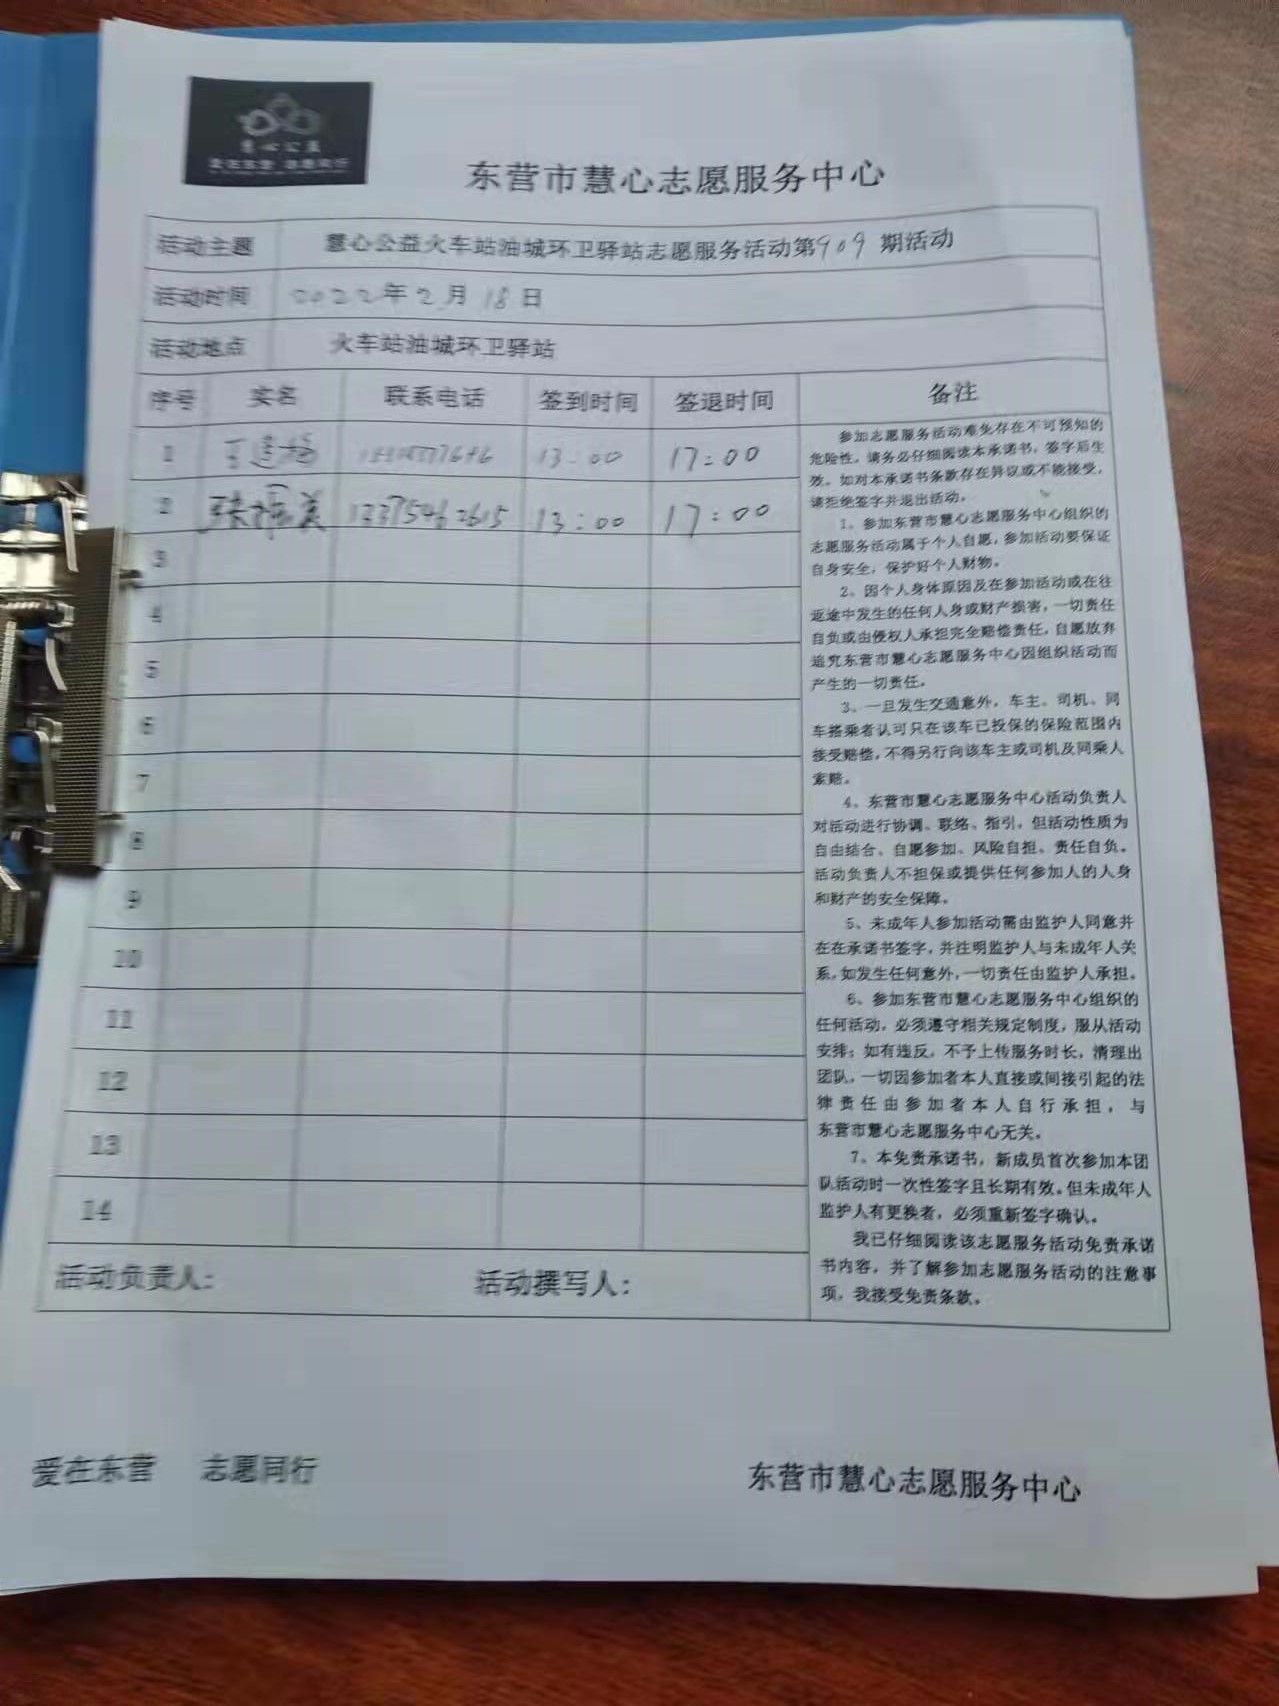 慧心公益
爱在东营 志愿同行
东营市慧心志愿服务中心
活动主题 慧心公益火车站油城环卫驿站志愿服务活动第909期活动
活动时间 2022年2月18日
活动地点 火车站油城环卫驿站
序号 实名 联系电话 签到时间 签退时间 备注
1 13:00 17:00
2 张 13375462615 13:00 17:00
3
4
5
6
7
8
9
10
11
12
13
14
参加志愿服务活动难免存在不可预知的
危险性，请务必仔细阅读本承诺书，签字后生
效。如对本承诺书条款存在异议或不能接受，
请拒绝签字并退出活动。
1、参加东营市慧心志愿服务中心组织的
志愿服务活动属于个人自愿，参加活动要保证
自身安全，保护好个人财物。
2、因个人身体原因及在参加活动或在往
返途中发生的任何人身或财产损害，一切责任
自负或由侵权人承担完全赔偿责任，自愿放弃
追究东营市慧心志愿服务中心因组织活动而
产生的一切责任。
3、一旦发生交通意外，车主、司机、同
车搭乘者认可只在该车已投保的保险范围内
接受赔偿，不得另行向该车主或司机及同乘人
索赔。
4、东营市慧心志愿服务中心活动负责人
对活动进行协调、联络、指引，但活动性质为
自由结合、自愿参加、风险自担、责任自负。
活动负责人不担保或提供任何参加人的人身
和财产的安全保障。
5、未成年人参加活动需由监护人同意并
在在承诺书签字，并注明监护人与未成年人关
系，如发生任何意外，一切责任由监护人承担。
6、参加东营市慧心志愿服务中心组织的
任何活动，必须遵守相关规定制度，服从活动
安排；如有违反，不予上传服务时长，清理出
团队，一切因参加者本人直接或间接引起的法
律责任由参加者本人自行承担，与
东营市慧心志愿服务中心无关。
7、本免责承诺书，新成员首次参加本团
队活动时一次性签字且长期有效。但未成年人
监护人有更换者，必须重新签字确认。
我已仔细阅读该志愿服务活动免责承诺
书内容，并了解参加志愿服务活动的注意事
项，我接受免责条款。
活动负责人： 活动撰写人：
爱在东营 志愿同行 东营市慧心志愿服务中心